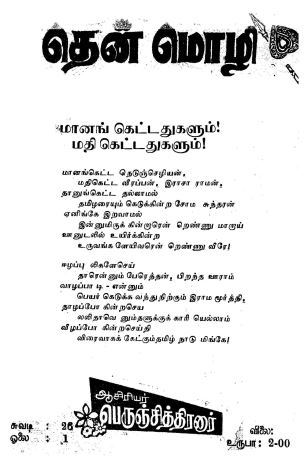 தென் மொழி
மானங் கெட்டதுகளும்!
மதி கெட்டதுகளும்!
மானங்கெட்ட நெடுஞ்செழியன்,
மதிகெட்ட வீரப்பன், இராசா ராமன்,
தானுங்கெட்ட தல்லாமல்
தமிழரையும் கெடுக்கின்ற சோம சுந்தரன்
ஏனிங்கே இறவாமல்
இன்னுமிருக் கின்றாரென் றெண்ணு மாறாய்
ஊனுடலில் உயிர்க்கின்ற
உருவங்களேயிவரென் றெண்ணு வீரே!
ஈழப்பு லிகளேசெய்
தாரென்னும் பேரைத்தன், பிறந்த ஊராம்
வாழப்பா டி - என்னும்
பெயர் கெடுக்க வந்துநிற்கும் இராம மூர்த்தி,
தாழப்போ கின்றசெய்
லலிதாவெ னும்தளுக்குக் காரி யெல்லாம்
வீழப்போ கின்றசெய்தி
விரைவாகக் கேட்கும்தமிழ் நாடு மிங்கே!
ஆசிரியர்
பெருஞ்சித்திரனார்
சுவடி : 26
ஓலை : 1
விலை:
உருபா: 2-00